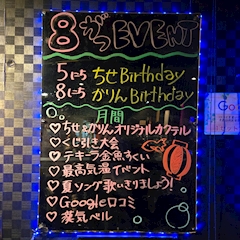 8がつEVENT
5にち ちせBirthday
8にち かりんBirthday
月間
♡ちせ&かりんオリジナルカクテル
♡くじ引き大会
♡テキーラ金魚すくい
♡最高気温イベント
♡夏ソング歌いきりましょう!
♡Google口コミ
♡蒸気ベル
Go